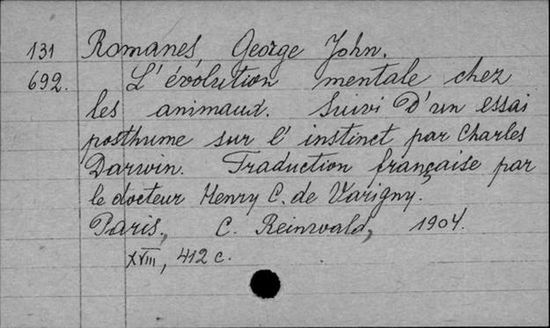 131 Romanes George John.
692. L'évolution mentale chez
les animaux. Suivi d'un essai
posthume sur l'instinct par Charles
Darwin. Traduction française par
le docteur Henry C. de Varigny.
Paris, C. Reinwald, 1904.
XVIII, 412 c.